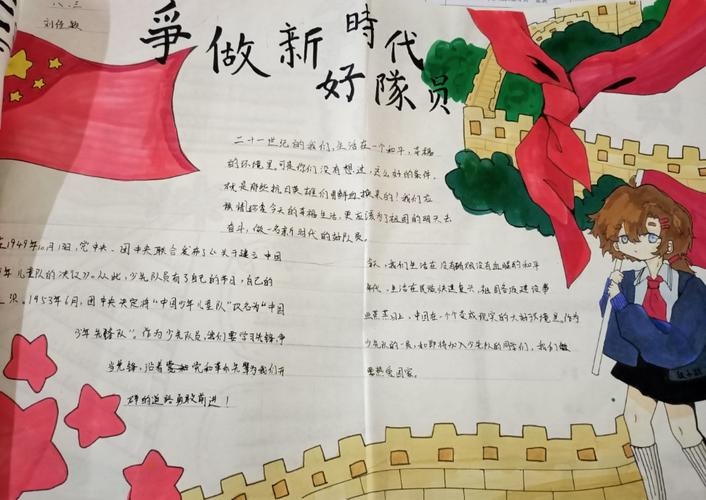 八.三
爭做新時代
好隊员
二十一世纪的我们,生活在一个和平,幸福
的环境里.可是你们没有想过,这么好的条件.
就是那些抗日英雄们用鲜血换来的!我们应
珍惜今天的幸福生活,更应该为了祖国的明天去
奋斗,做一名新时代的好队员。
1949年10月1日,党中央、团中央联合发布了《关于建立中国
年儿童队的决议》。从此,少先队员有了自己的节日,自己的
1953年6月,团中央决定将“中国少年儿童队”改名为“中国
少年先锋队”。作为少先队员,我们要学习先锋,争
当先锋,沿着党和革命先辈为我们开
辟的道路勇敢前进!
今天,我们生活在没有硝烟没有血腥的和平
年代,生活在民族快速复兴,祖国各族建设事
业蒸蒸日上,中国在一个个变成现实的大好环境里.作为
少先队的一员,和即将加入少先队的同学们,我们做
要热爱国家。